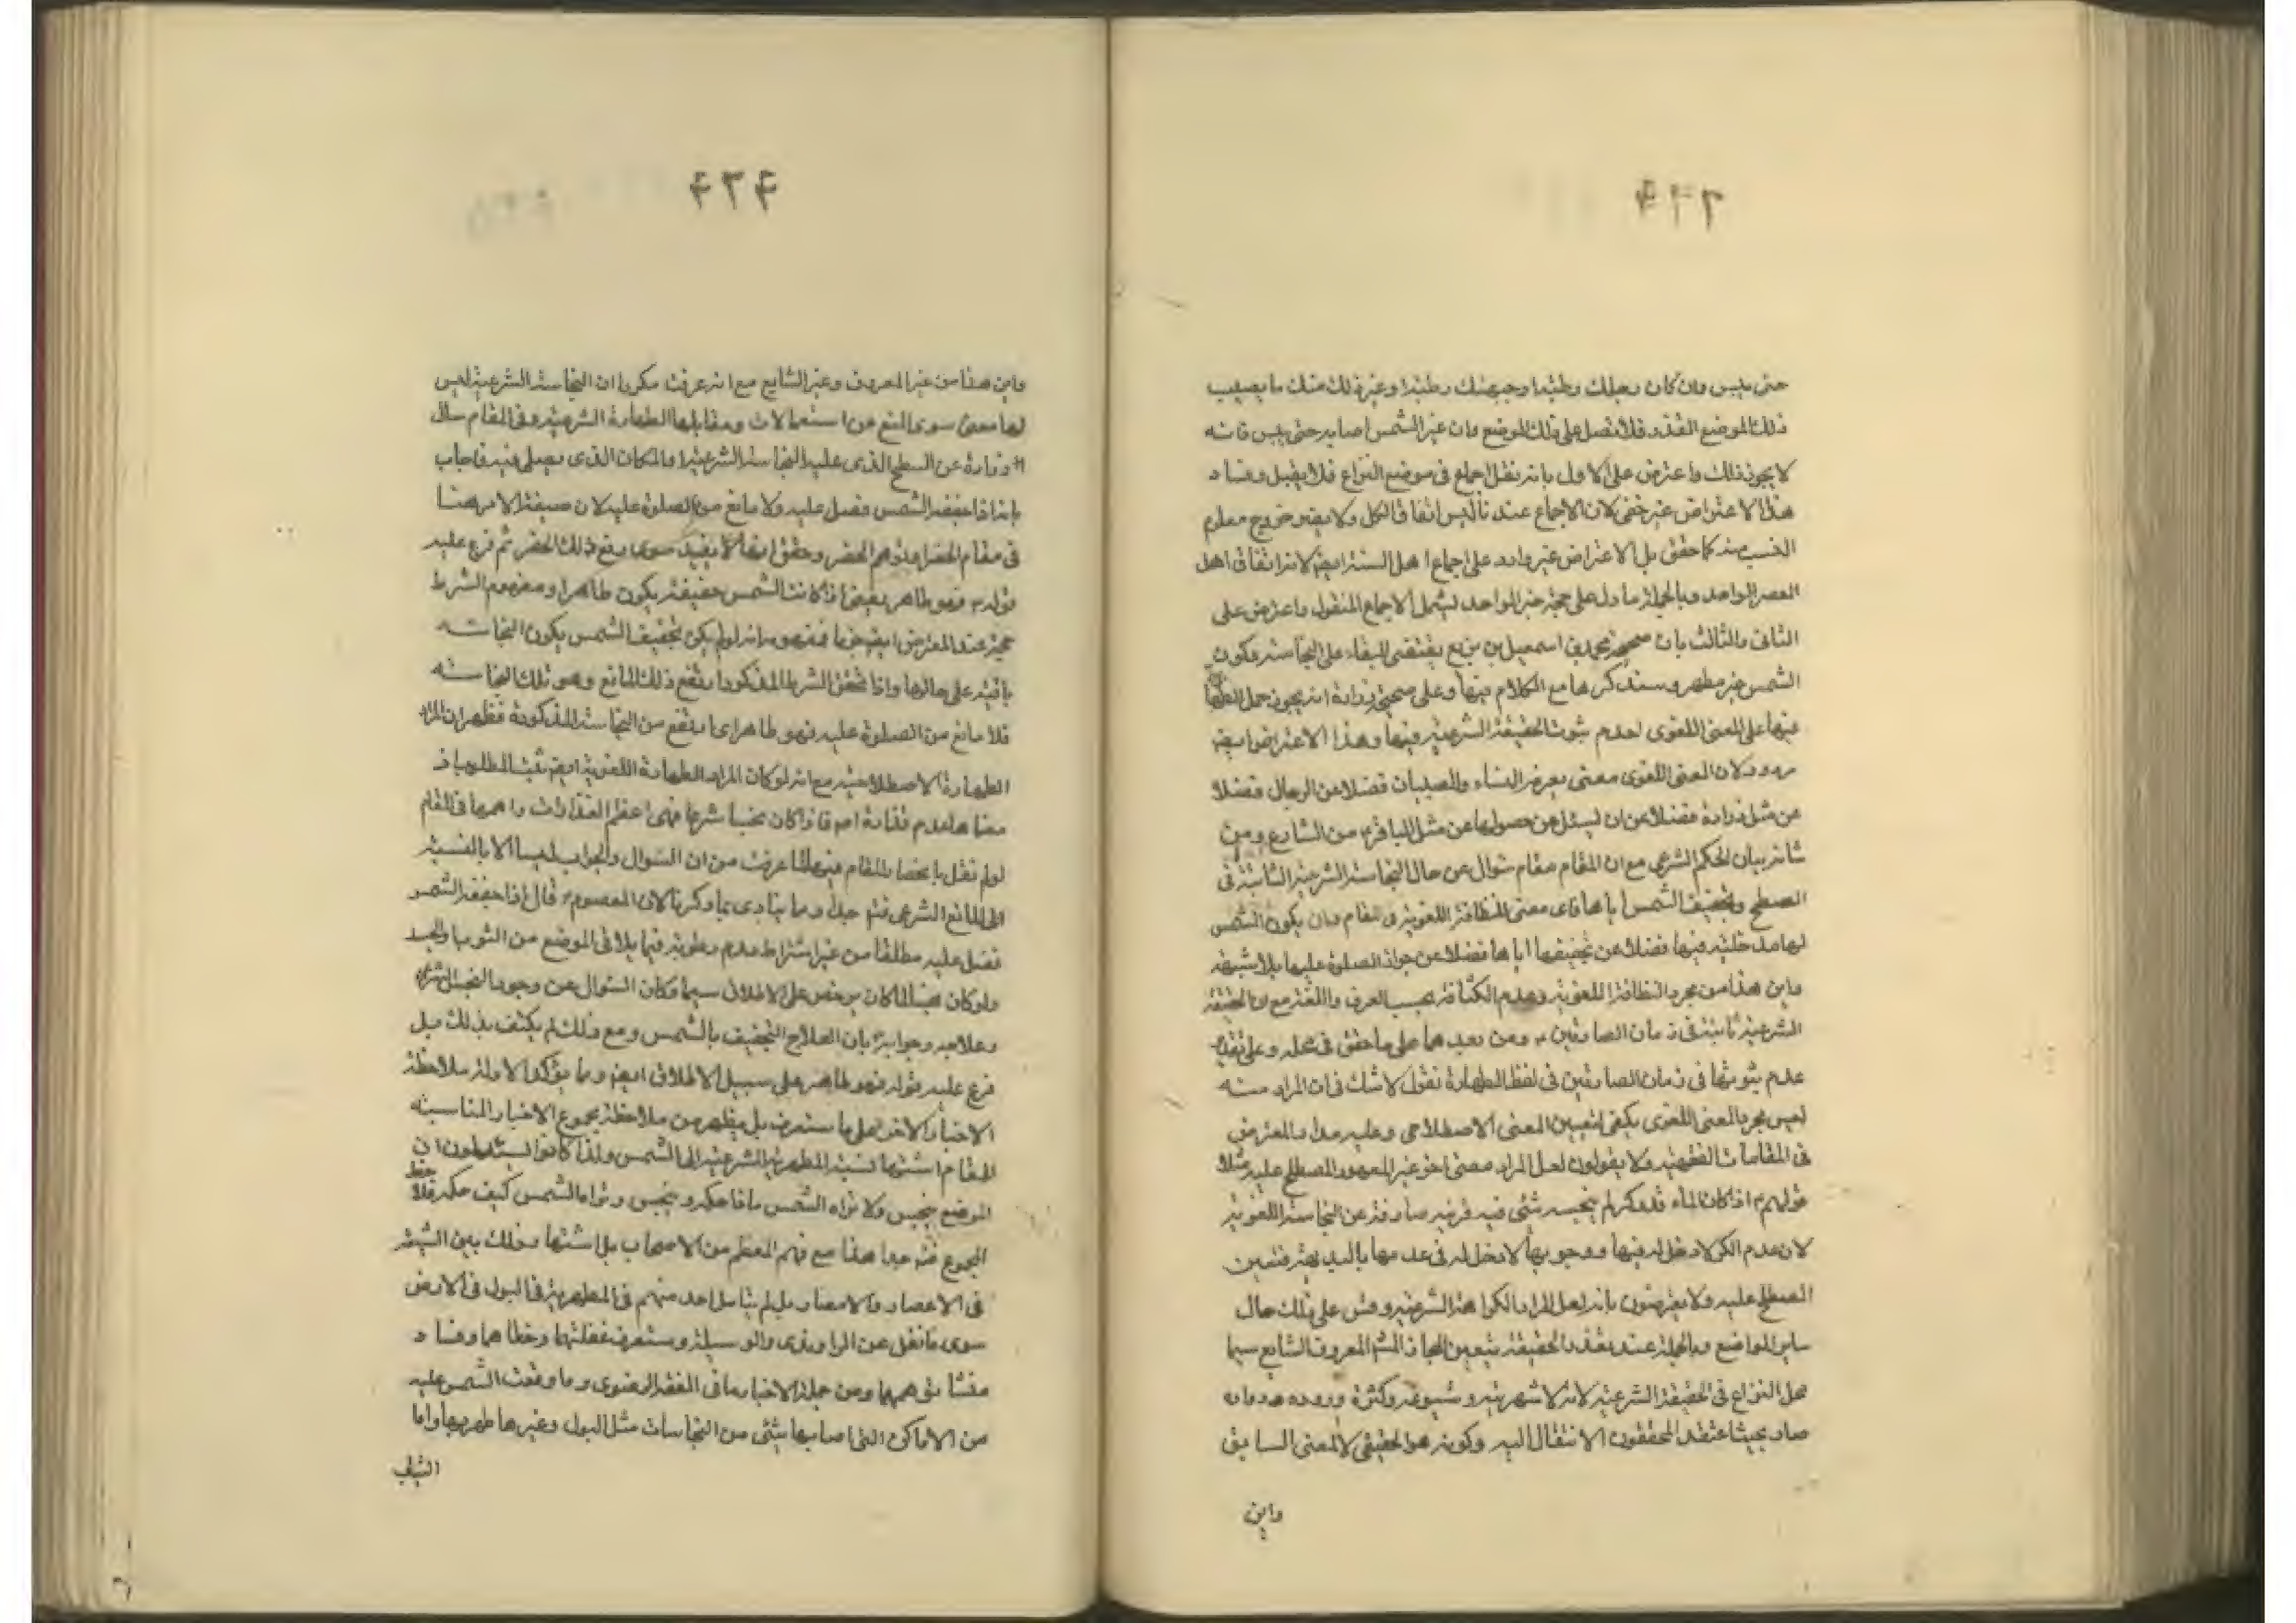 ۴۳۳
حتى ييبس وان كان رجلك رطبة او جبهتك رطبة او غير ذلك منك ما يصيب
ذلك الموضع القذر فلا تصل على ذلك الموضع وان غير الشمس اصابه حتى يبس فانه
لا يجوز ذلك واعترض على الاول بانه نقل اجماع فى موضع النزاع فلا يقبل وفساد
هذا الاعتراض غير خفى لان الاجماع عندنا ليس اتفاق الكل ولا يضره خروج معلوم
النسب منه كما حقق بل الاعتراض غير وارد على اجماع اهل السنة ايضا لانه اتفاق اهل
العصر الواحد وبالجملة ما دل على حجية خبر الواحد يشمل الاجماع المنقول واعترض على
الثانى والثالث بان صحيحة محمد بن اسمعيل بن بزيع يقتضى البقاء على النجاسة فكون
الشمس غير مطهر وسنذكرها مع الكلام فيها وعلى صحيحة زرارة انه يجوز حمل الطهارة
فيها على المعنى اللغوى لعدم ثبوت الحقيقة الشرعية فيها وهذا الاعتراض ايضا
مردود لان المعنى اللغوى معنى يعرفه النساء والصبيان فضلا عن الرجال فضلا
عن مثل زرارة فضلا عن ان يسئل عن حصولها عن مثل الباقر من الشارع ومن
شانه بيان الحكم الشرعى مع ان المقام مقام سؤال عن حال النجاسة الشرعية الثابتة فى
السطح وتجفيف الشمس اياها فاى معنى للنظافة اللغوية فى المقام وان يكون الشمس
لها مدخلية فيها فضلا عن تجفيفها اياها فضلا عن جواز الصلوة عليها بلا شبهة
واين هذا من مجرد النظافة اللغوية وعدم الكثافة بحسب العرف واللغة مع ان الحقيقة
الشرعية ثابتة فى زمان الصادقين ومن بعدهما على ما حقق فى محله وعلى تقدير
عدم ثبوتها فى زمان الصادقين فى لفظ الطهارة نقول لا شك فى ان المراد منه
ليس مجرد المعنى اللغوى يكفى لتعيين المعنى الاصطلاحى وعليه مدار المعترض
فى المقامات الفقهية ولا يقولون لعل المراد معنى اخر غير المعهود المصطلح عليه مثلا
قولهم اذا كان الماء قدر كر لم ينجسه شئ فيه قرينة صارفة عن النجاسة اللغوية
لان عدم الكر لا دخل له فيها ووجوبها لا دخل له فى عدمها بالبديهة فتعين
المصطلح عليه ولا يعترضون بانه لعل المراد الكراهة الشرعية وقس على ذلك حال
ساير المواضع وبالجملة عند تعذر الحقيقة يتعين المجاز المشهور المعروف الشايع سيما
محل النزاع فى الحقيقة الشرعية لانه لاشهريته وشيوعه وكثرة وروده
صار بحيث اعتقد المحققون الانتقال اليه وكونه هو الحقيقى لا المعنى السابق
واين
۴۳۴
واين هذا من غير المعروف وغير الشايع مع انه عرفت مكررا ان النجاسة الشرعية ليس
لها معنى سوى المنع من استعمالات ومقابلها الطهارة الشرعية وفى المقام سال
زرارة عن السطح الذى عليه النجاسة الشرعية والمكان الذى يصلى فيه فاجاب
بانه اذا جففه الشمس فصل عليه ولا مانع من الصلوة عليه لان صيغة الامر هنا
فى مقام الحضر او توهم الحضر وحقق انها لا يفيد سوى رفع ذلك الحضر ثم فرع عليه
قوله فهو طاهر يعنى اذا كانت الشمس جفيفته يكون طاهرا ومفهوم الشرط
حجة عند المعترض ايضا فمفهومه انه لو لم يكن تجفيف الشمس يكون النجاسة
باقية على حالها واذا تحقق الشرط المذكور ارتفع ذلك المانع وهو تلك النجاسة
فلا مانع من الصلوة عليه فهو طاهر اى ارتفع من النجاسة المذكورة فظهر ان المراد
الطهارة الاصطلاحية مع انه لو كان المراد الطهارة اللغوية ايضا يثبت المطلوب اذ
معناها عدم قذارة اصلا فاذا كان نجسا شرعا فهى اعظم القذارات واهمها فى المقام
لو لم نقل بانحصار المقام فيها لما عرفت من ان السؤال والجواب ليسا الا بالنسبة
الى المانع الشرعى فتدبر جدا ومما ينادى بما ذكرنا ان المعصوم قال اذا جففه الشمس
فصل عليه مطلقا من غير اشتراط عدم رطوبة فيما يلاقى الموضع من الثوب والجسد
ولو كان نجسا لما كان يرخص على الاطلاق سيما وكان السؤال عن وجود النجس الشرعى
وعلاجه وجوابه بان العلاج التجفيف بالشمس ومع ذلك لم يكتف بذلك بل
فرع عليه قوله فهو طاهر على سبيل الاطلاق ايضا ومما يؤكد الادلة ملاحظة
الاخبار الاخر على ما ستعرف بل يظهر من ملاحظة مجموع الاخبار المناسبة
للمقام اشتهار نسبة المطهرية الشرعية الى الشمس ولذا كانوا يسئلون ان
الموضع ينجس ولا تراه الشمس ما ذا حكمه وينجس وتراه الشمس كيف حكمه فلاحظ
المجموع فتدبر جدا هذا مع فهم المعظم من الاصحاب بل اشتهارها وذلك بين الشيعة
فى الاعصار والامصار بل لم يتامل احد منهم فى المطهرية فى البول فى الارض
سوى ما نقل عن الراوندى والوسيلة وستعرف غفلتها وخطاهما وفساد
منشا توهمهما ومن جملة الاخبار ما فى الفقه الرضوى وما وقعت الشمس عليه
من الاماكن التى اصابها شئ من النجاسات مثل البول وغيرها طهرتها واما
الثياب